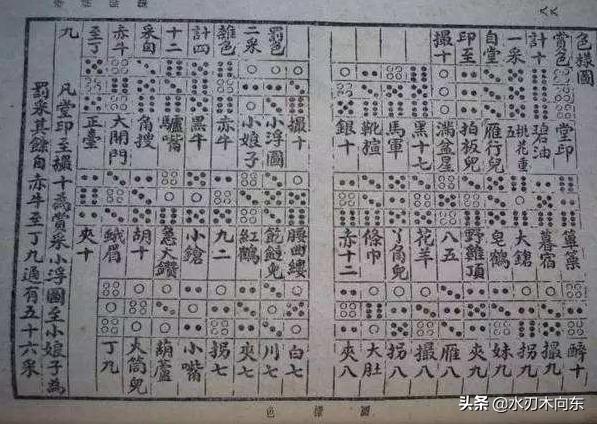 八八
色樣圖
賞色
計十
一采
自堂
印至
撮十
堂印
碧油
桃花重五
雁行兒
拍板兒
滿盆星
黑十七
馬軍
靴楦
銀十
篳篥
暮宿
大鎗
皂鶴
野雞頂
八五
花羊
丫角兒
條巾
赤十二
醉十
撮九
拐九
妹九
夾九
雁八
撮八
拐八
大肚
夾八
罰色
二采
雜色
計四
十二
采自
赤牛
至丁
九
撮十
小浮圖
小娘子
赤牛
黑牛
驢嘴
角搜
大開門
正臺
腰曲縷
飣餖兒
紅鶴
九二
小鎗
急火鑽
胡十
蛾眉
夾十
白七
川七
夾七
拐七
小嘴
葫蘆
火筒兒
丁九
凡堂印至撮十為賞采小浮圖至小娘子為
罰采其餘自赤牛至丁九通有五十六采
色樣圖
头条 @水刃木向东